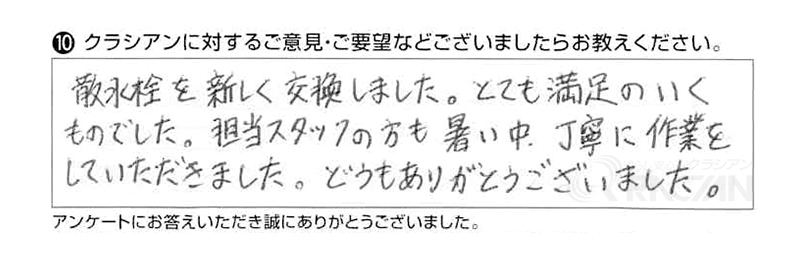 ⑩ クラシアンに対するご意見・ご要望などございましたらお教えください。
散水栓を新しく交換しました。とても満足のいく
ものでした。担当スタッフの方も暑い中、丁寧に作業を
していただきました。どうもありがとうございました。
アンケートにお答えいただき誠にありがとうございました。